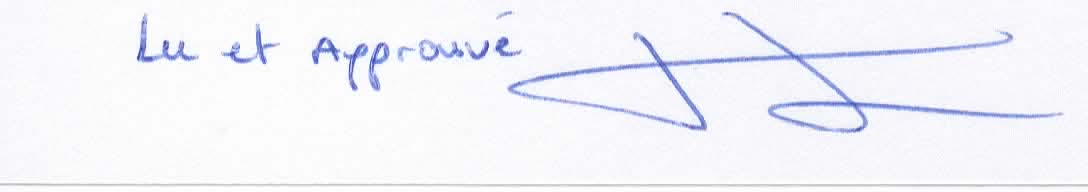 Lu et Approuvé